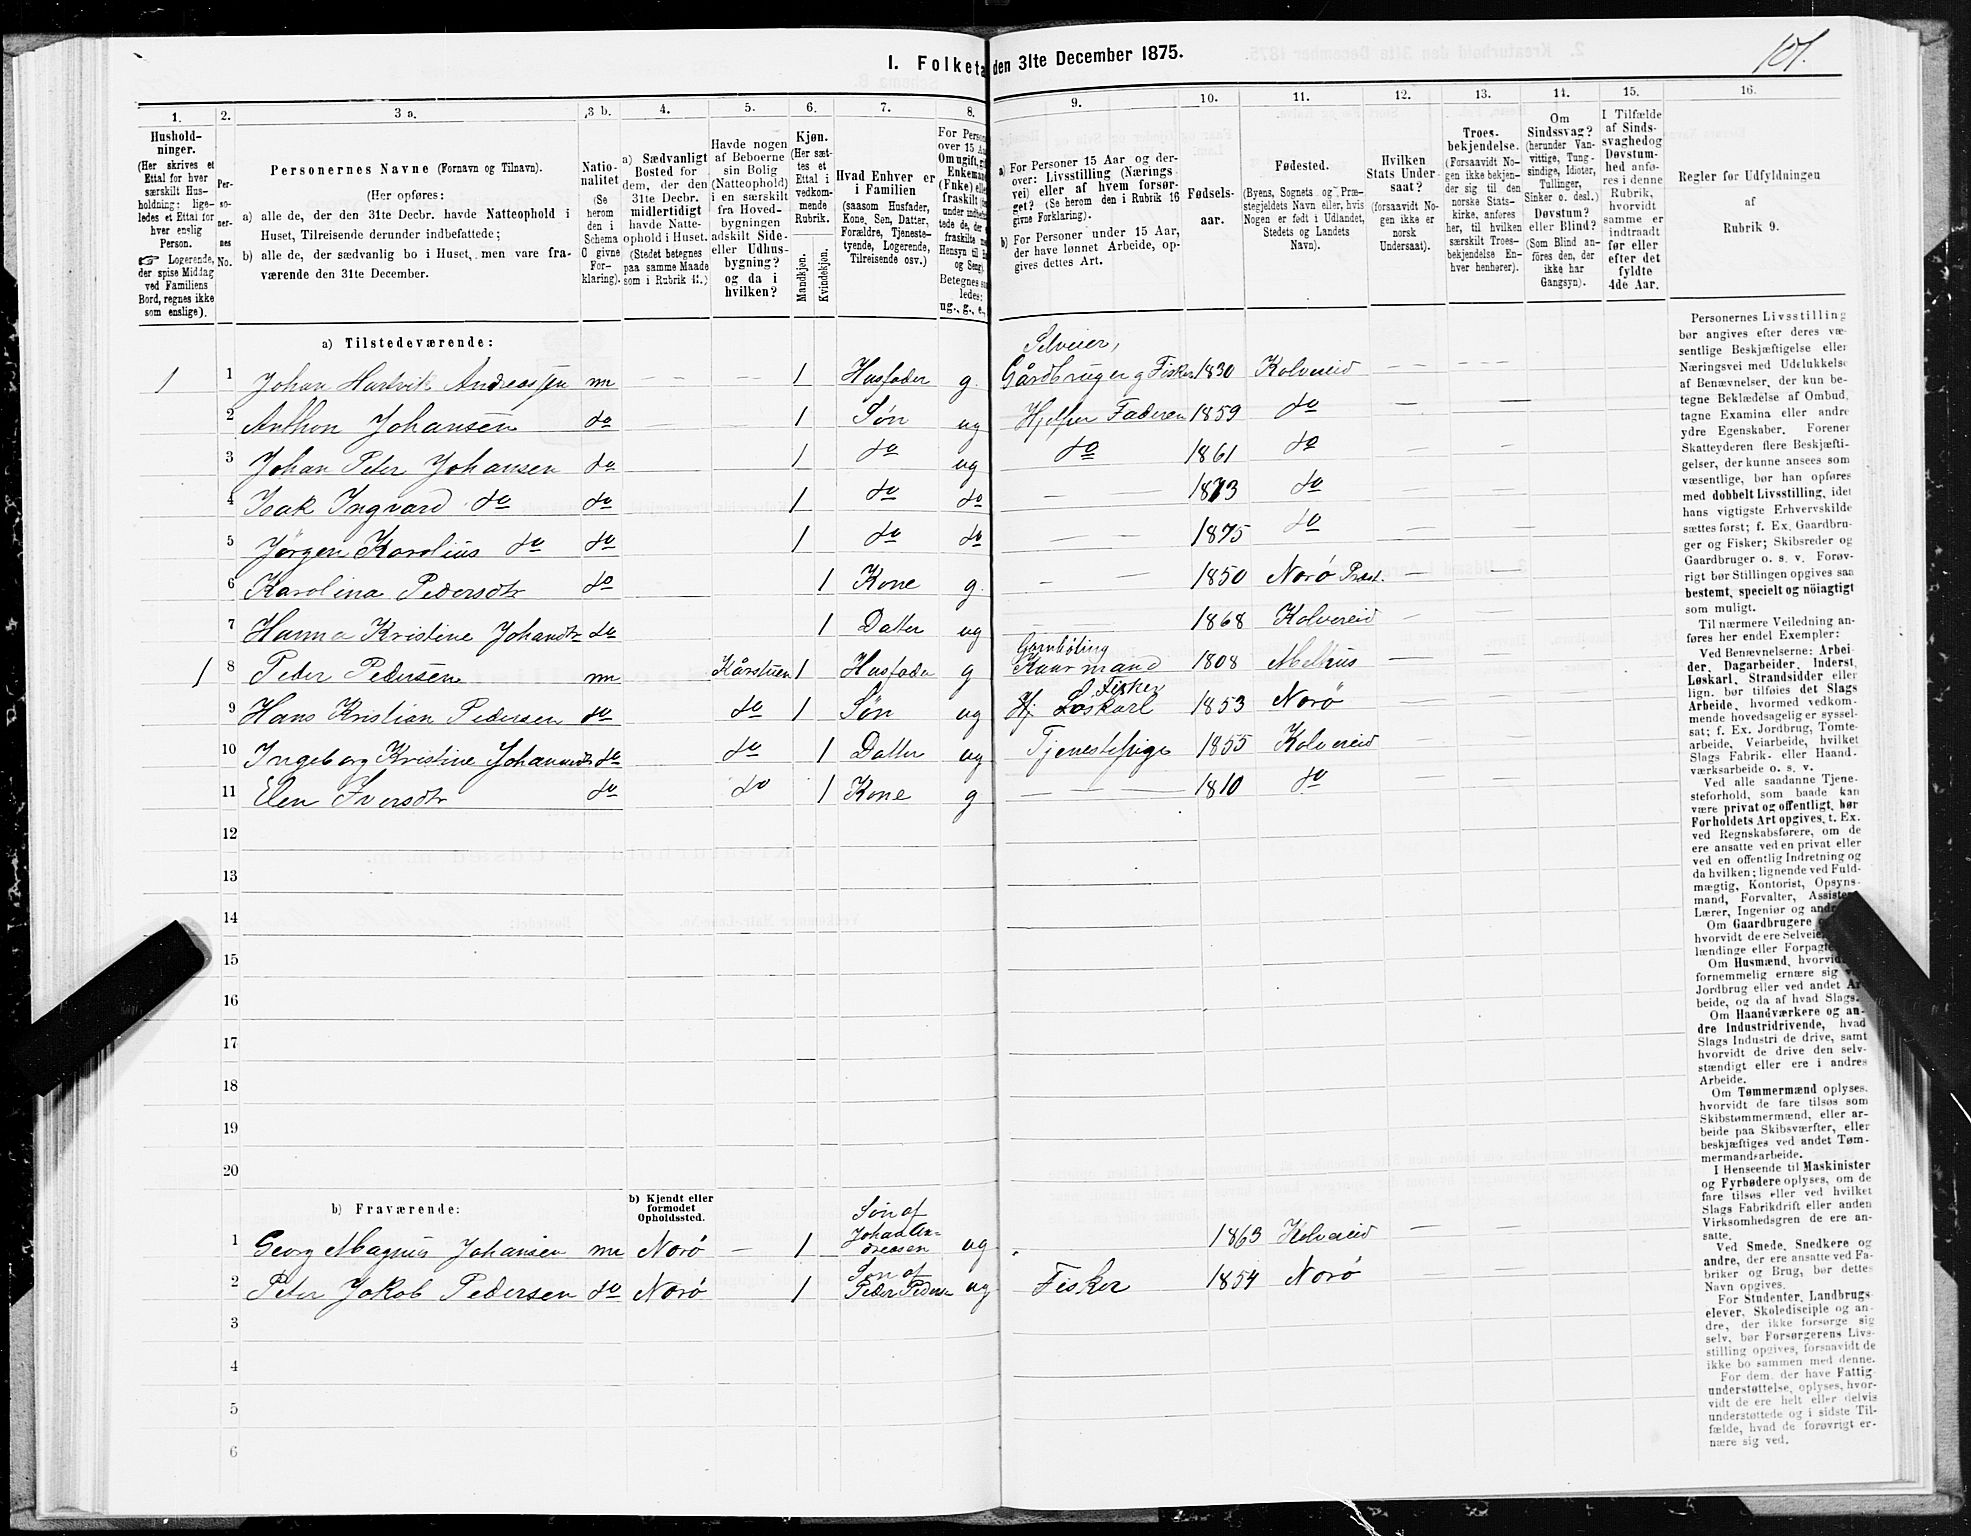 101.
I. Folketa den 31te December 1875.
1. 2. 3 a. 3 b. 4. 5. 6. 7. 8. 9. 10. 11. 12. 13. 14. 15. 16.
Hushold-
ninger.
(Her skrives et
Ettal for hver
særskilt Hus-
holdning; lige-
ledes et Ettal for
hver enslig
Person.
☞ Logerende,
der spise Middag
ved Familiens
Bord, regnes ikke
som enslige).
Per-
so-
ner-
nes
No.
Personernes Navne (Fornavn og Tilnavn).
(Her opføres:
a) alle de, der den 31te Decbr. havde Natteophold i
Huset, Tilreisende derunder indbefattede;
b) alle de, der sædvanlig bo i Huset, men vare fra-
værende den 31te December.
Natio-
nalitet
(Se
herom
den i
Schema
C givne
For-
klaring).
a) Sædvanligt
Bosted for
dem, der den
31te Decbr.
midlertidigt
havde Natte-
ophold i Huset.
(Stedet betegnes
paa samme Maade
som i Rubrik 11.)
Havde nogen
af Beboerne
sin Bolig
(Natteophold)
i en særskilt
fra Hoved-
bygningen
adskilt Side-
eller Udhus-
bygning?
og da i
hvilken?
Kjøn.
(Her sæt-
tes et
Ettal i
vedkom-
mende
Rubrik.
Mandkjøn.
Kvindekjøn.
Hvad Enhver er
i Familien
(saasom Husfader,
Kone, Søn, Datter,
Forældre, Tjeneste-
tyende, Logerende,
Tilreisende osv.)
For Perso
over 15 Aa
Om ugift, g
Enkeman
(Fnke) elle
fraskilt
under indbefat
tede de, der
fraskilte
Hensyn til
og Seng).
Betegnes
ledes:
ug., g., e.,
a) For Personer 15 Aar og der-
over: Livsstilling (Nærings
vei) eller af hvem forsør-
get? (Se herom den i Rubrik 16
givne Forklaring).
b) For Personer under 15 Aar,
der have lønnet Arbeide, op-
gives dettes Art.
Fødsels-
aar.
Fødested.
(Byens, Sognets og Præ-
stegjeldets Navn eller, hvis
Nogen er født i Udlandet,
Stedets og Landets
Navn).
Hvilken
Stats Under-
saat?
(forsaavidt No-
gen ikke er
norsk
Undersaat).
Troes-
bekjendelse.
(Forsaavidt No-
gen ikke bekjen-
der sig til den
norske Stats-
kirke, anføres
her, til hvilken
særskilt Troes-
bekjendelse En-
hver henhører).
Om
Sindssvag?
(herunder Van-
vittige, Tung-
sindige, Idioter,
Tullinger,
Sinker o. desl.)
Døvstum?
eller Blind?
(Som Blind an-
føres den, der
ikke har
Gangsyn).
I Tilfælde
af Sinds-
svaghed og
Døvstum-
hed anfø-
res i denne
Rubrik,
hvorvidt
samme er
indtraadt
før eller
efter det
fyldte
4de Aar.
Regler for Udfyldningen
af
Rubrik 9.
a) Tilstedeværende:
Selveier,
1 1 Johan Hartvik Andreassen nn — — 1 Husfader g. Gårdbruger g Fisker 1830 Kolvereid — — —
2 Anthon Johansen do — 1 Søn ug Hjelper Faderen 1859 do — —
3 Johan Peter Johansen do 1 do ug do 1861 do — —
4 Isak Ingvard do do 1 do do — — 1873 do — —
5 Jørgen Karolius do do 1 do do — — 1875 do — —
6 Karolina Pedersdtr do 1 Kone g. — — 1850 Norø Præst. — —
7 Hanna Kristine Johandtr do 1 Datter ug 1868 Kolvereid — —
1 8 Peder Pedersen nn Kårstuen 1 Husfader g Kaarmand 1808 Melhus — —
Fisker
9 Hans Kristian Pedersen do do 1 Søn ug Hj Løskarl 1853 Norø — —
10 Ingeborg Kristine Johannesdtr do do 1 Datter ug Tjenestepige 1855 Kolvereid — —
11 Elen Iversdtr do do 1 Kone g — — — 1810 do — —
12
13
14
15
16
17
18
19
20
b) Fraværende:
b) Kjendt eller
formodet
Opholdssted.
1 Georg Magnus Johansen nn Norø — 1 Søn af Johan An-
dreasen ug 1863 Kolvereid — —
2 Peter Jakob Pedersen do Norø 1 Søn af
Peder Pedersen ug Fisker 1854 Norø — —
3
4
5
6
Personernes Livsstilling
bør angives efter deres væ-
sentlige Beskjæftigelse eller
Næringsvei med Udelukkelse
af Benævnelser, der kun be-
tegne Beklædelse af Ombud,
tagne Examina eller andre
ydre Egenskaber. Forener
Skatteyderen flere Beskjæfti-
gelser, der kunne ansees som
væsentlige, bør han opføres
med dobbelt Livsstilling, idet
hans vigtigste Erhvervskilde
sættes først; f. Ex. Gaardbru-
ger og Fisker; Skibsreder og
Gaardbruger o. s. v. Forøv-
rigt bør Stillingen opgives saa
bestemt, specielt og nöiagtigt
som muligt.
Til nærmere Veiledning an-
føres her endel Exempler:
Ved Benævnelserne: Arbei-
der, Dagarbeider, Inderst,
Løskarl, Strandsidder eller
lign. bør tilføies det Slags
Arbeide, hvormed vedkom-
mende hovedsagelig er syssel-
sat; f. Ex. Jordbrug, Tomte-
arbeide, Veiarbeide, hvilket
Slags Fabrik- eller Haand-
værksarbeide o. s. v.
Ved alle saadanne Tjene-
steforhold, som baade kan
være privat og offentligt, bør
Forholdets Art opgives, t. Ex.
ved Regnskabsførere, om de
ere ansatte ved en privat eller
ved en offentlig Indretning og
da hvilken; lignende ved Fuld-
mægtig, Kontorist, Opsyns-
mand, Forvalter, Assistent,
Lærer, Ingeniør og andre.
Om Gaardbrugere
hvorvidt de ere Selveie
lændinge eller Forpagte
Om Husmænd, hvorvidt
fornemmelig ernære sig
Jordbrug eller ved andet Ar-
beide, og da af hvad Slags.
Om Haandværkere og an-
dre Industridrivende, hvad
Slags Industri de drive, samt
hvorvidt de drive den selv-
stændigt eller ere i andres
Arbeide.
Om Tømmermænd oplyses,
hvorvidt de fare tilsøs som
Skibstømmermænd, eller ar-
beide paa Skibsværfter, eller
beskjæftiges ved andet Tøm-
mermandsarbeide.
I Henseende til Maskinister
og Fyrbødere oplyses, om de
fare tilsøs eller ved hvilket
Slags Fabrikdrift eller anden
Virksomhedsgren de ere an-
satte.
Ved Smede, Snedkere og
andre, der ere ansatte ved Fa-
briker og Brug, bør dettes
Navn opgives.
For Studenter, Landbrugs-
elever, Skoledisciple og an-
dre, der ikke forsørge sig
selv, bør Forsørgerens Livs-
stilling opgives, forsaavidt de
ikke bo sammen med denne.
For dem, der have Fattig-
understøttelse, oplyses, hvor-
vidt de ere helt eller delvis
understøttede og i sidste Til-
fælde, hvad de forøvrigt er-
nære sig ved.